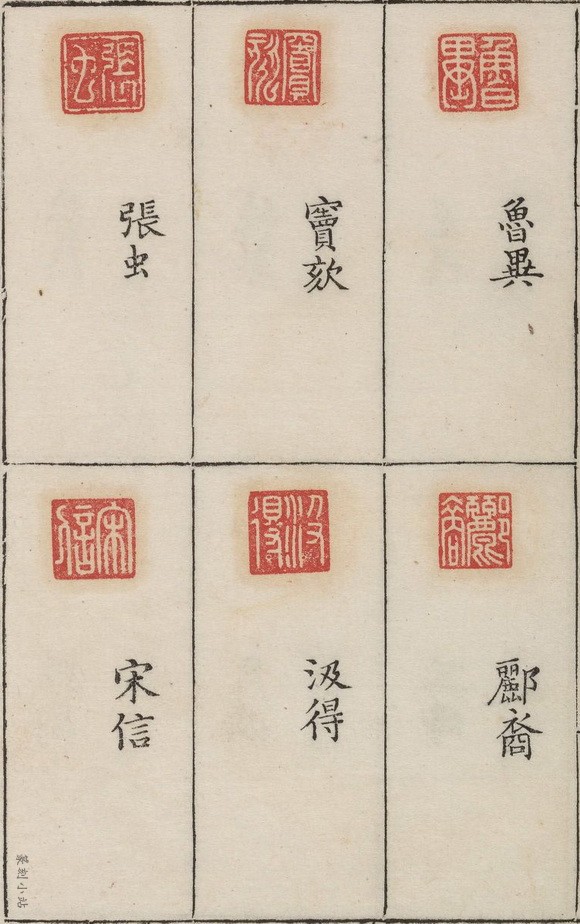 魯異
竇欬
張虫
酈裔
汲得
宋信
篆刻小站